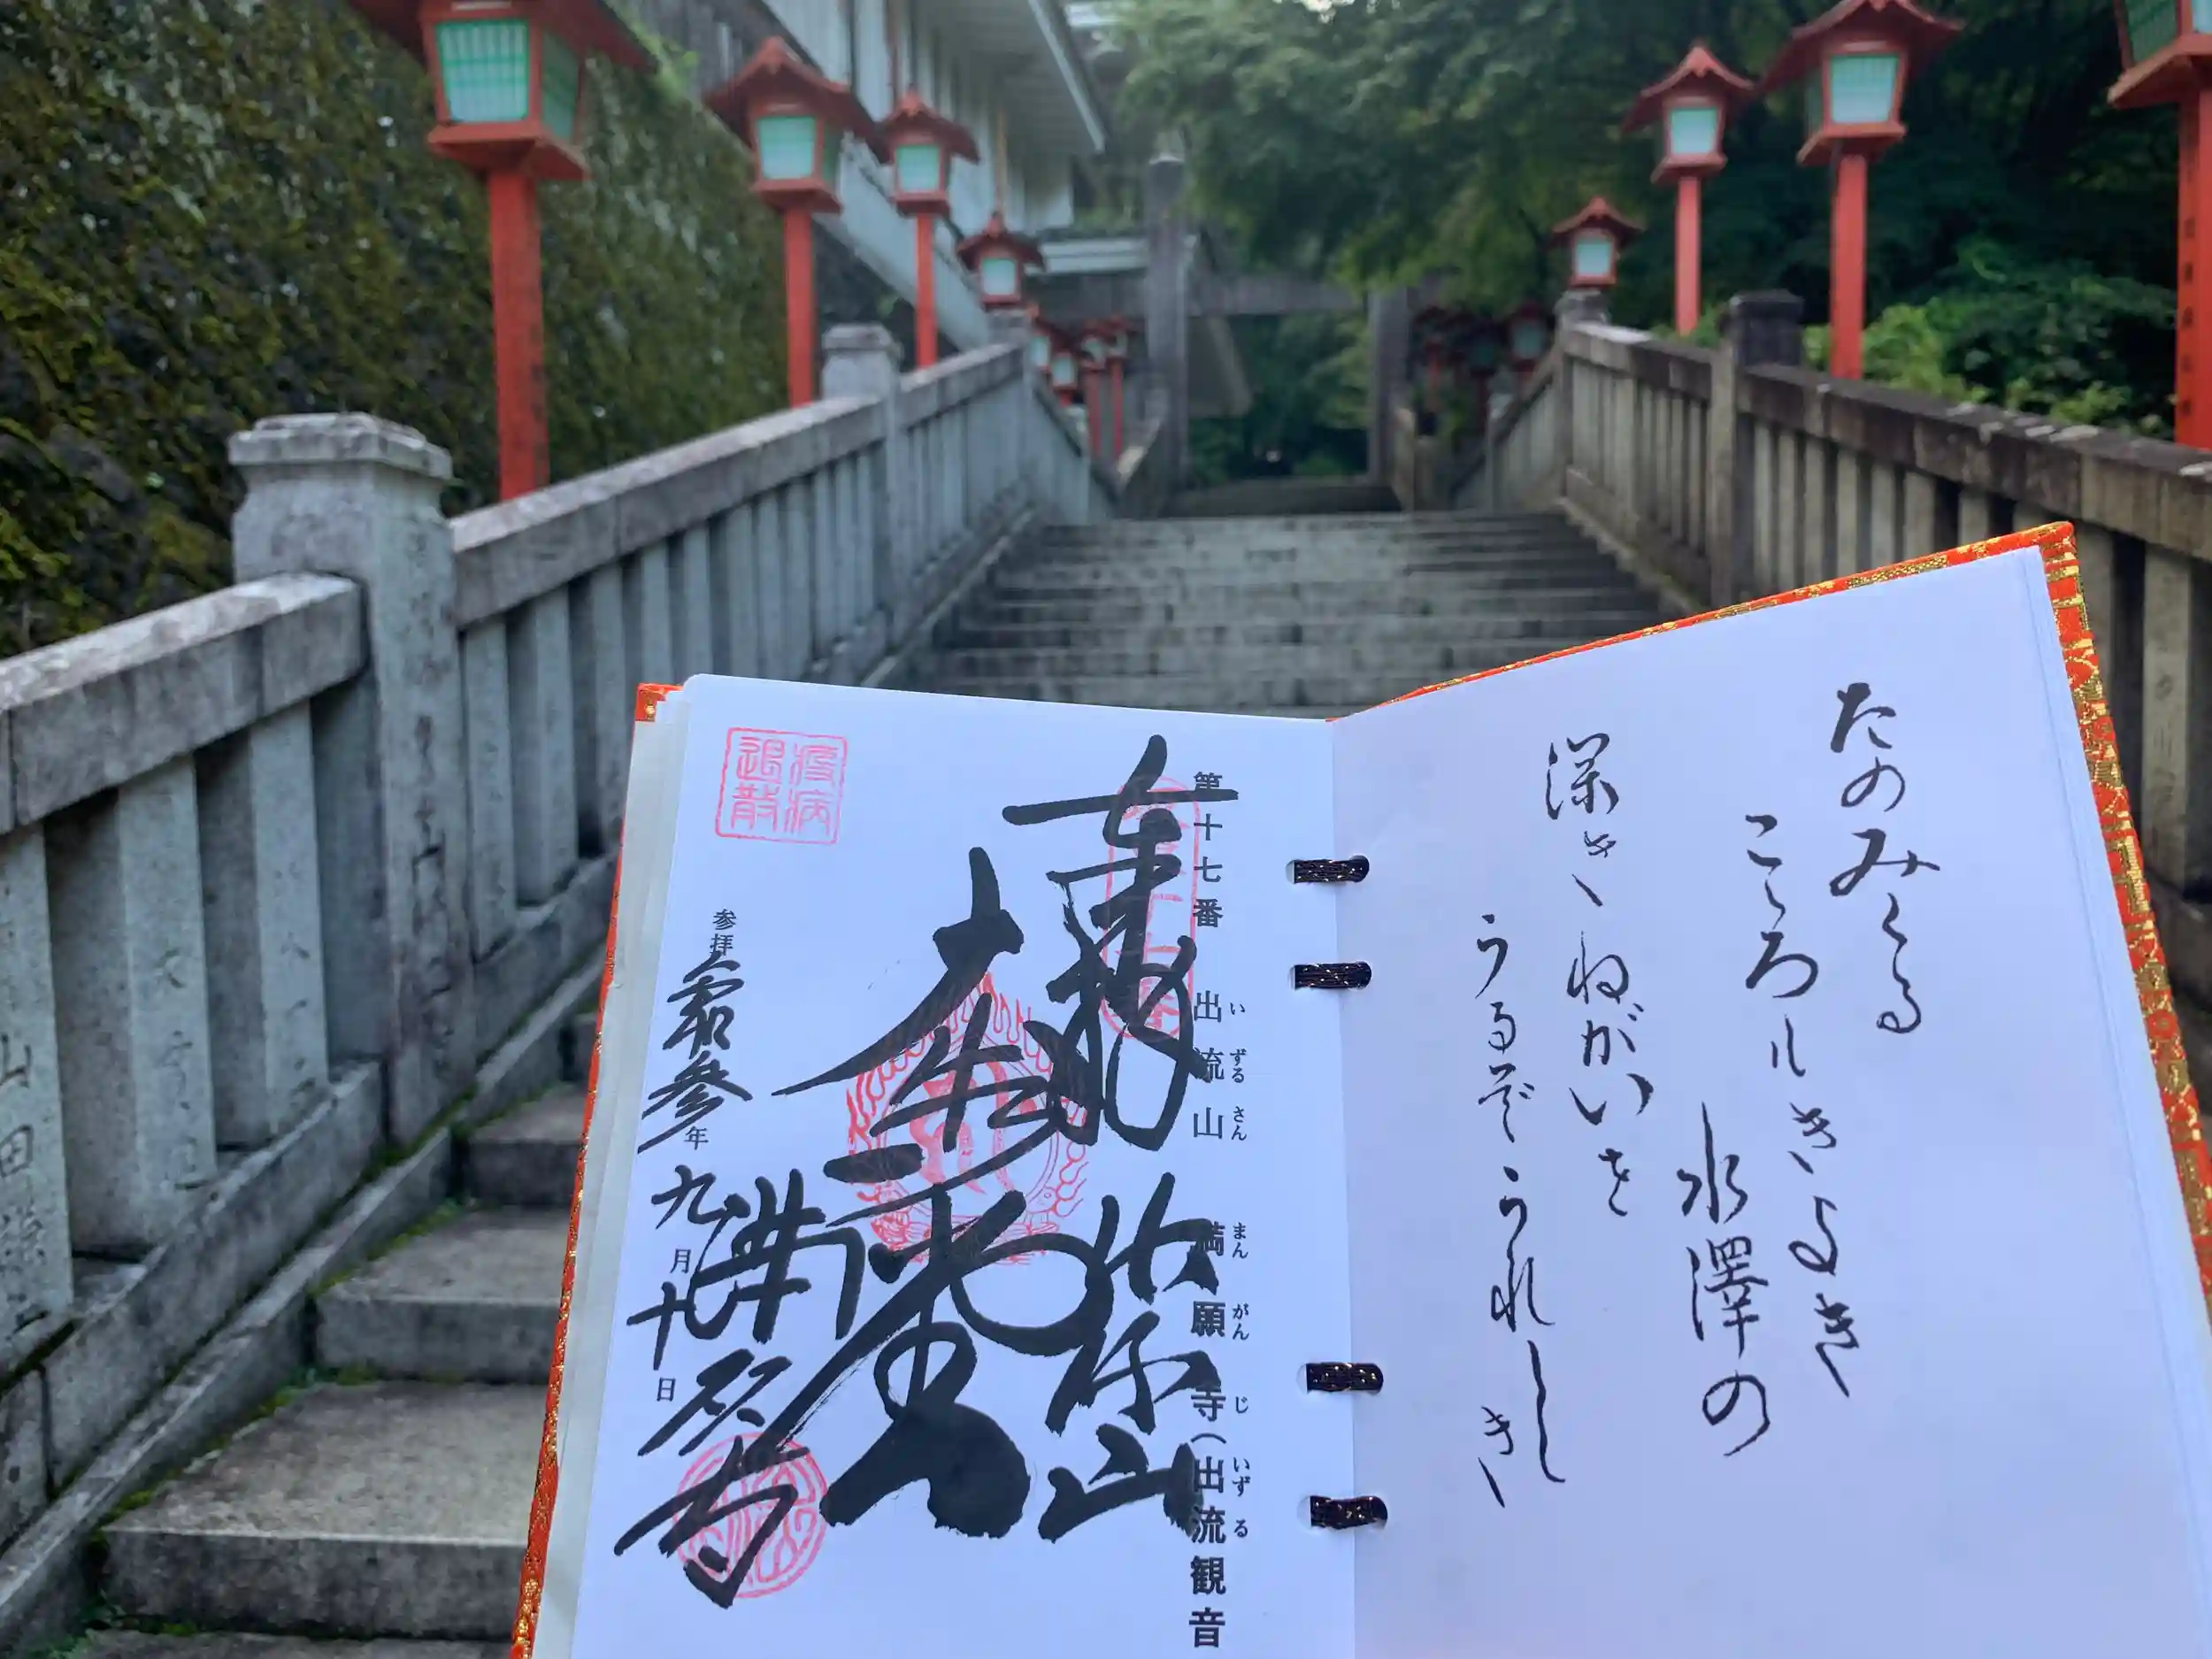 たのみくる
こゝろもきよき
水澤の
深きねがいを
うるぞうれしき
第十七番 出流山 満願寺（出流観音
いずるさん まんがんじ いずる
奉拝 出流山
満願寺
参拝令和参年九月十日
疫病退散
山田